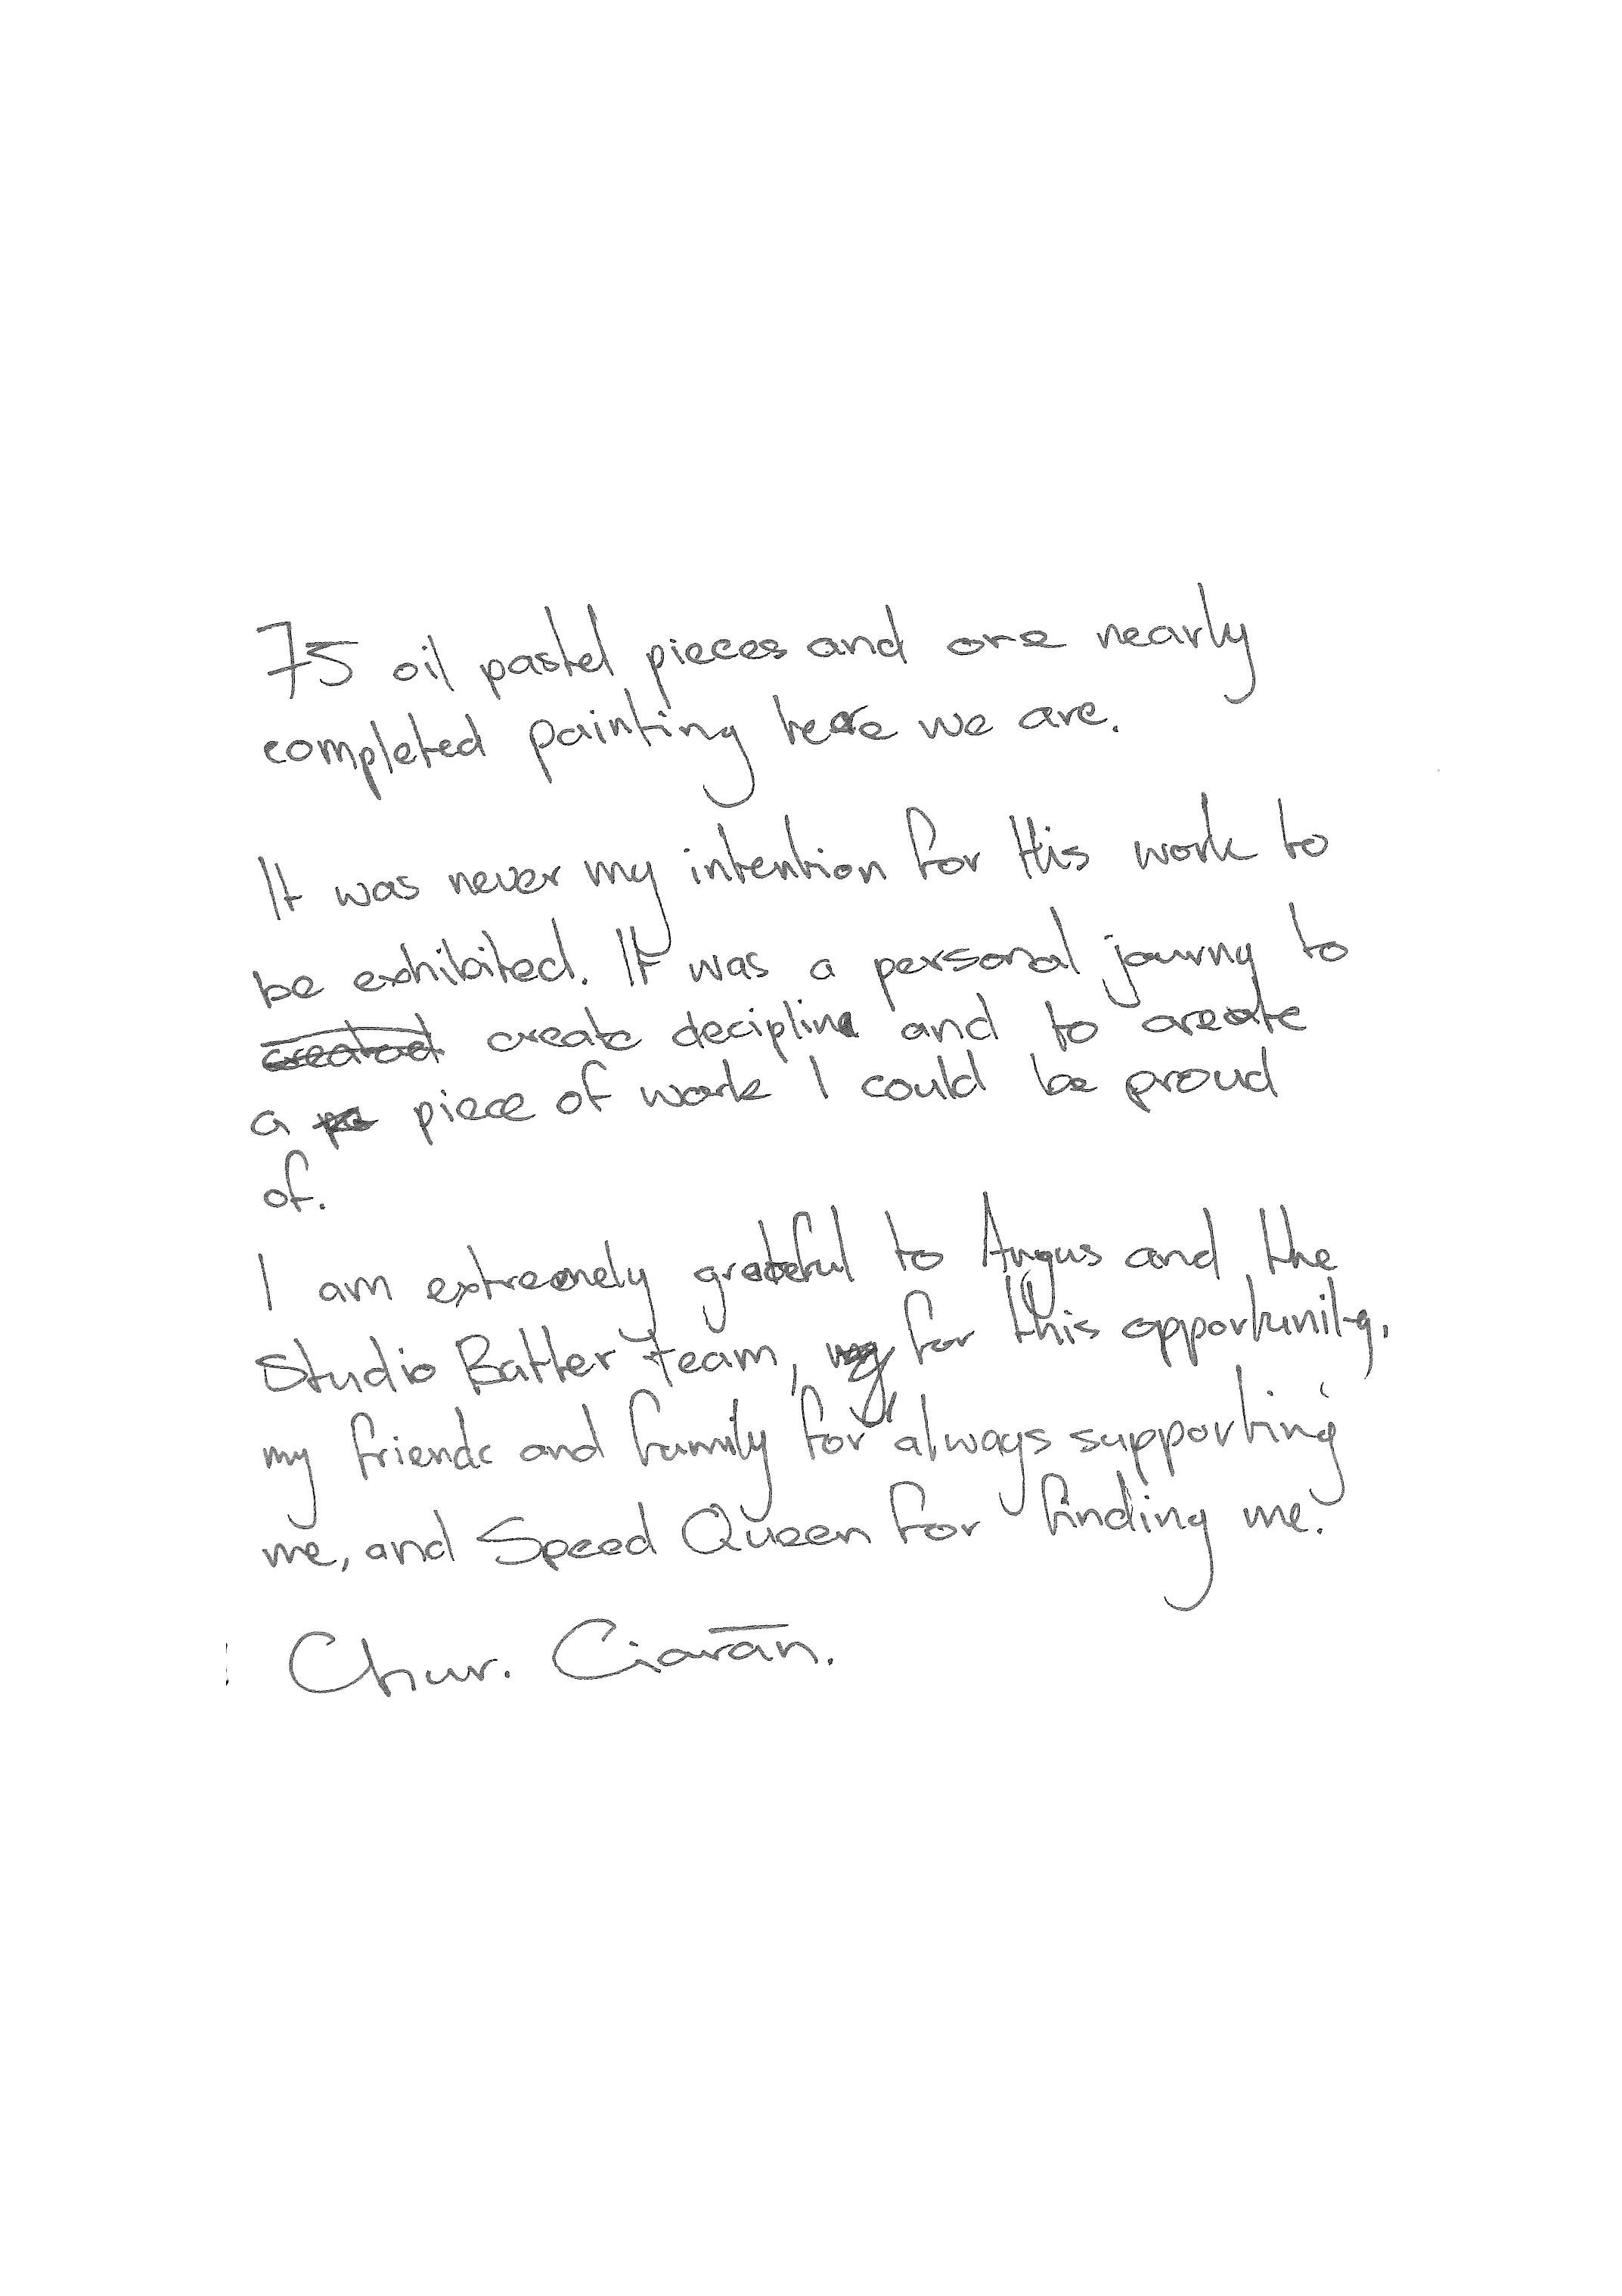 75 oil pastel pieces and one nearly
completed painting here we are.
It was never my intention for this work to
be exhibited. It was a personal journy to
created create decipline and to create
a piece of work I could be proud
of.
I am extremely grateful to Angus and the
Studio Batter team, my for this opportunity,
my friends and family for always supporting
me, and Speed Queen for finding me.
Chur. Ciarān.